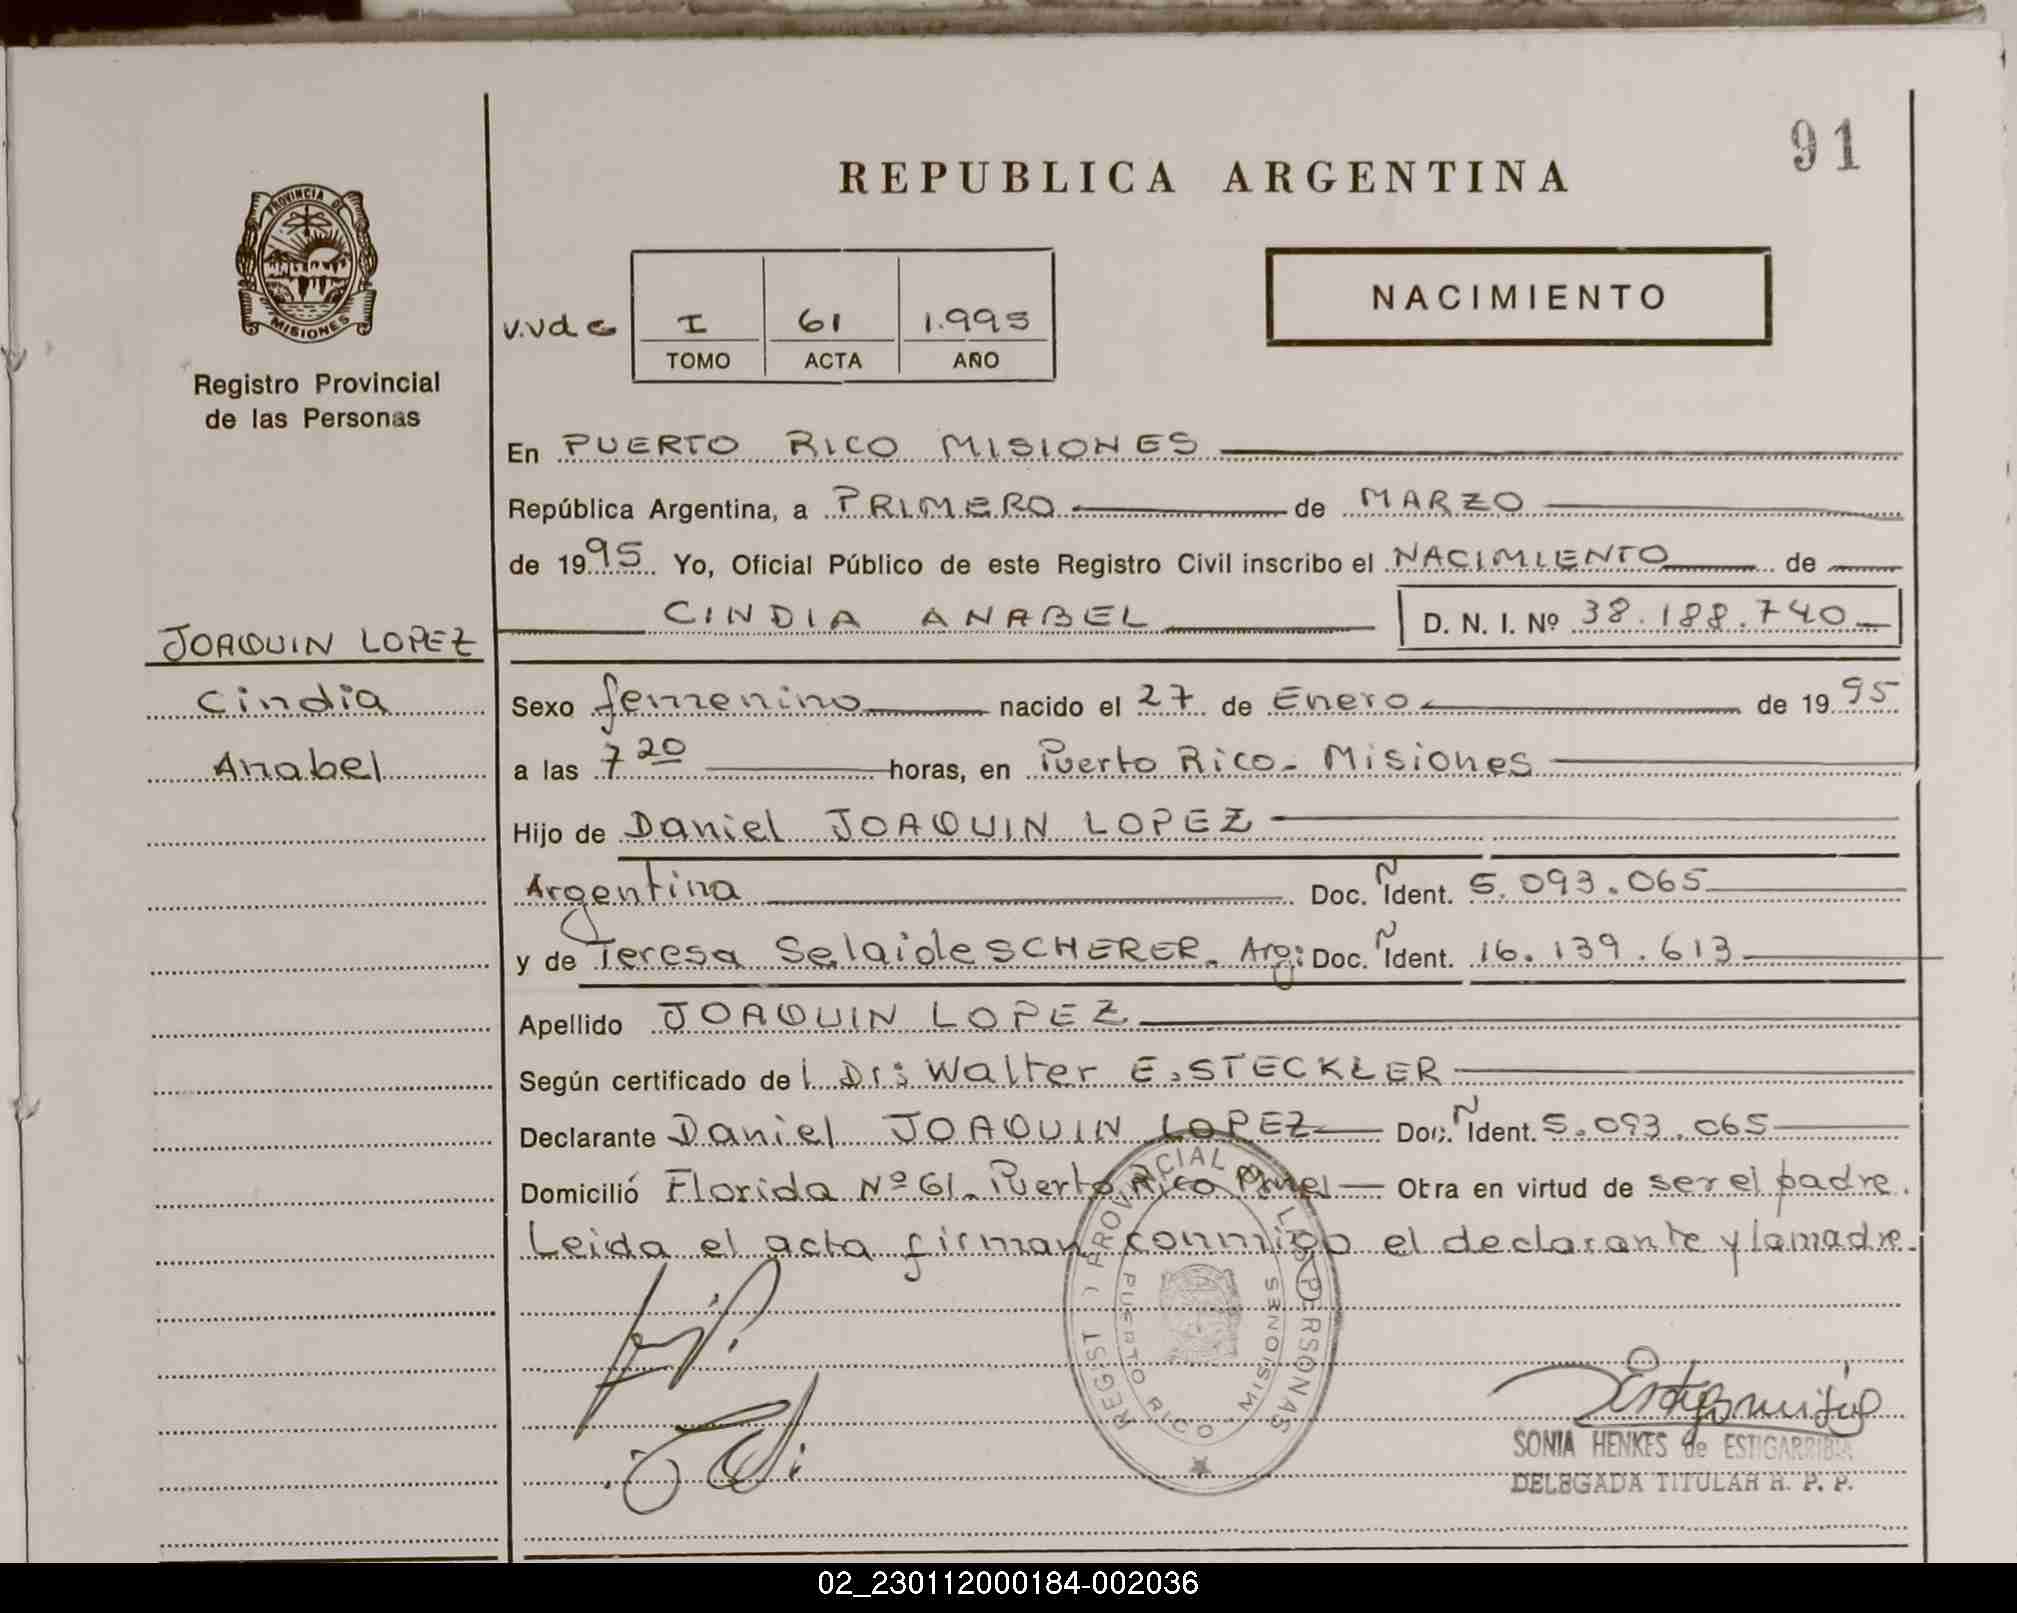 91
REPUBLICA ARGENTINA
PROVINCIA DE
MISIONES
NACIMIENTO
I 61 1.995
TOMO ACTA AÑO
Registro Provincial
de las Personas
En PUERTO RICO MISIONES
República Argentina, a PRIMERO de MARZO
de 1995 Yo, Oficial Público de este Registro Civil inscribo el NACIMIENTO de
CINDIA ANABEL D. N. I. Nº 38.188.740
JOAQUIN LOPEZ
Cindia
Anabel
Sexo femenino nacido el 27 de Enero de 1995
a las 7 20 horas, en Puerto Rico - Misiones
Hijo de Daniel JOAQUIN LOPEZ
Argentina Doc. Ñ Ident. 5.093.065
y de Teresa Selaide SCHERER. Arg: Doc. Ñ Ident. 16.139.613
Apellido JOAQUIN LOPEZ
Según certificado del Dr: Walter E. STECKLER
Declarante Daniel JOAQUIN LOPEZ Doc. Ñ Ident. 5.093.065
Domicilió Florida Nº 61. Puerto Rico Mnes Otra en virtud de ser el padre.
Leida el acta firman conmigo el declarante y la madre.
PROVINCIAL
PERSONAS
PUERTO RICO MISIONES
SONIA HENKES de ESTIGARRIBIA
DELEGADA TITULAR R. P. P.
02_230112000184-002036